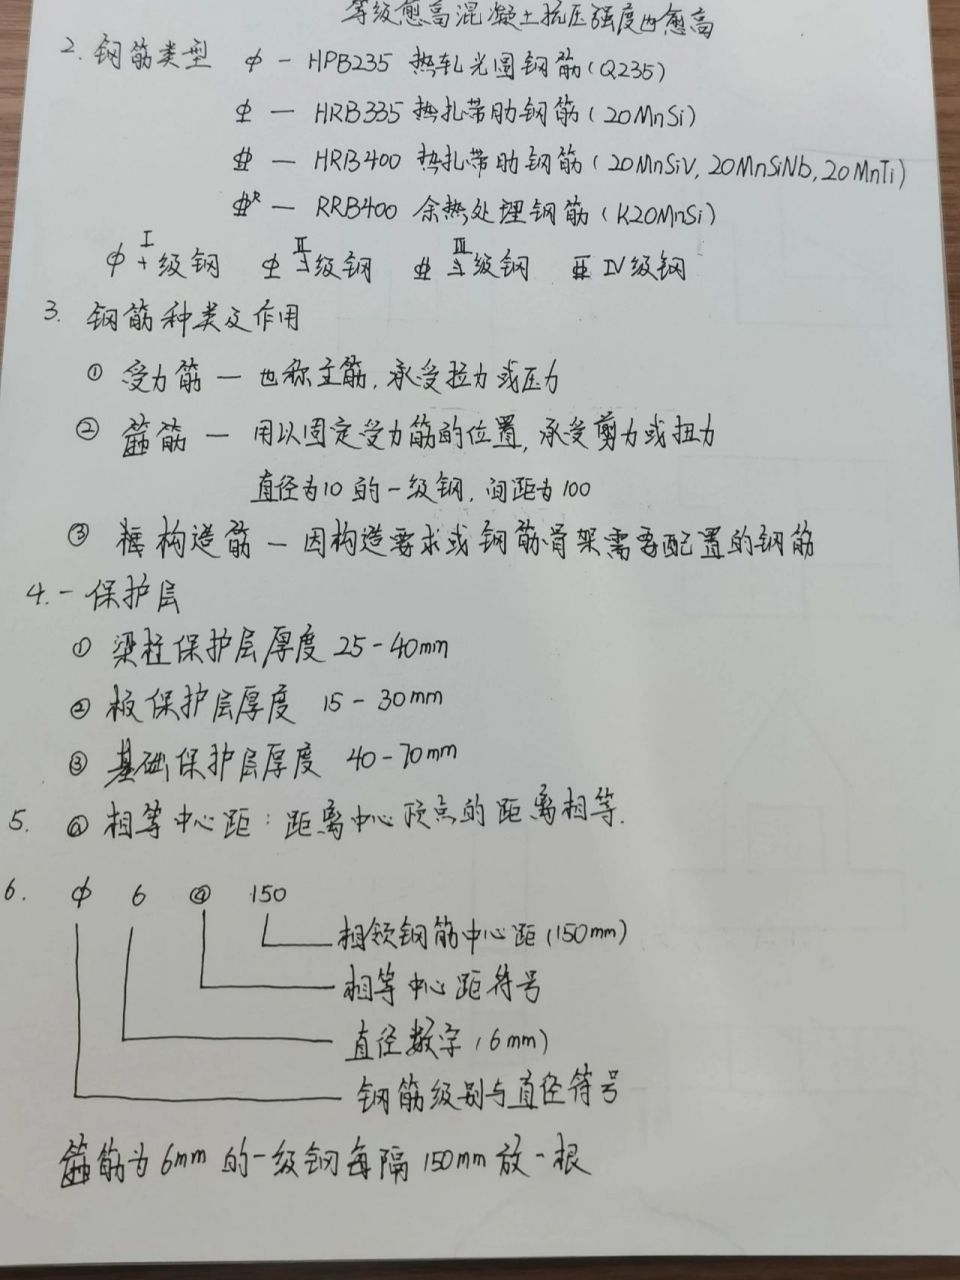 等级愈高混凝土抗压强度也愈高
2. 钢筋类型 ϕ — HPB235 热轧光圆钢筋(Q235)
— HRB335 热扎带肋钢筋(20MnSi)
— HRB400 热扎带肋钢筋(20MnSiV, 20MnSiNb, 20MnTi)
R — RRB400 余热处理钢筋(K20MnSi)
ϕ I 级钢 II 级钢 III 级钢 IV级钢
3. 钢筋种类及作用
① 受力筋 — 也称主筋, 承受拉力或压力
② 箍筋 — 用以固定受力筋的位置, 承受剪力或扭力
直径为10的一级钢, 间距为100
③ 构造筋 — 因构造要求或钢筋骨架需要配置的钢筋
4. 保护层
① 梁柱保护层厚度 25-40mm
② 板保护层厚度 15-30mm
③ 基础保护层厚度 40-70mm
5. @ 相等中心距:距离中心顶点的距离相等.
6. ϕ 6 @ 150
相领钢筋中心距(150mm)
相等中心距符号
直径数字(6mm)
钢筋级别与直径符号
箍筋为6mm的一级钢每隔150mm放一根